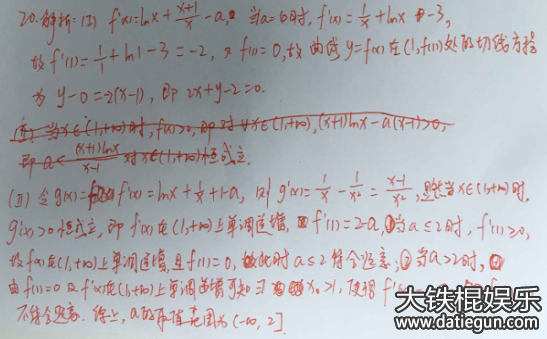 20.解析：(I) f'(x)=lnx+(x+1)/x-a, 当a=6时, f'(x)=1/x+lnx-3,
故f'(1)=1/1+ln1-3=-2, 又f(1)=0,故曲线y=f(x)在(1,f(1))处的切线方程
为 y-0=-2(x-1), 即 2x+y-2=0.
(II) 当x∈(1,+∞)时, f(x)>0, 即对∀x∈(1,+∞), (x+1)lnx-a(x-1)>0,
即 a<(x+1)lnx/(x-1) 对x∈(1,+∞)恒成立.
(II) 令g(x)=f'(x)=lnx+1/x+1-a, 则 g'(x)=1/x-1/x²=(x-1)/x², 显然当x∈(1,+∞)时,
g'(x)>0恒成立, 即f'(x)在(1,+∞)上单调递增, f'(1)=2-a, ①当a≤2时, f'(1)≥0,
故f(x)在(1,+∞)上单调递增,且f(1)=0, 故此时a≤2符合题意; ②当a>2时,
由f(1)=0及f'(x)在(1,+∞)上单调递增可知∃x₀>1, 使得f'
不符合题意. 综上, a的取值范围为(-∞,2]
大铁棍娱乐
www.datiegun.com